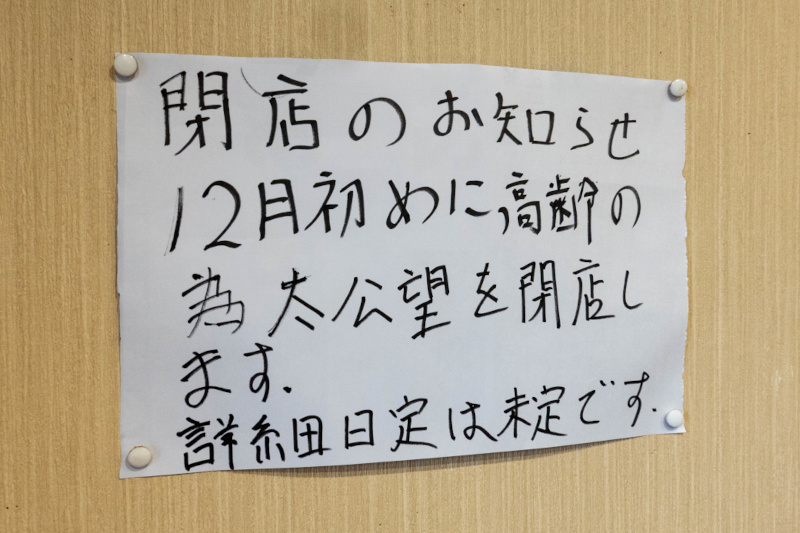 閉店のお知らせ
12月初めに高齢の
為太公望を閉店し
ます.
詳細日定は未定です.